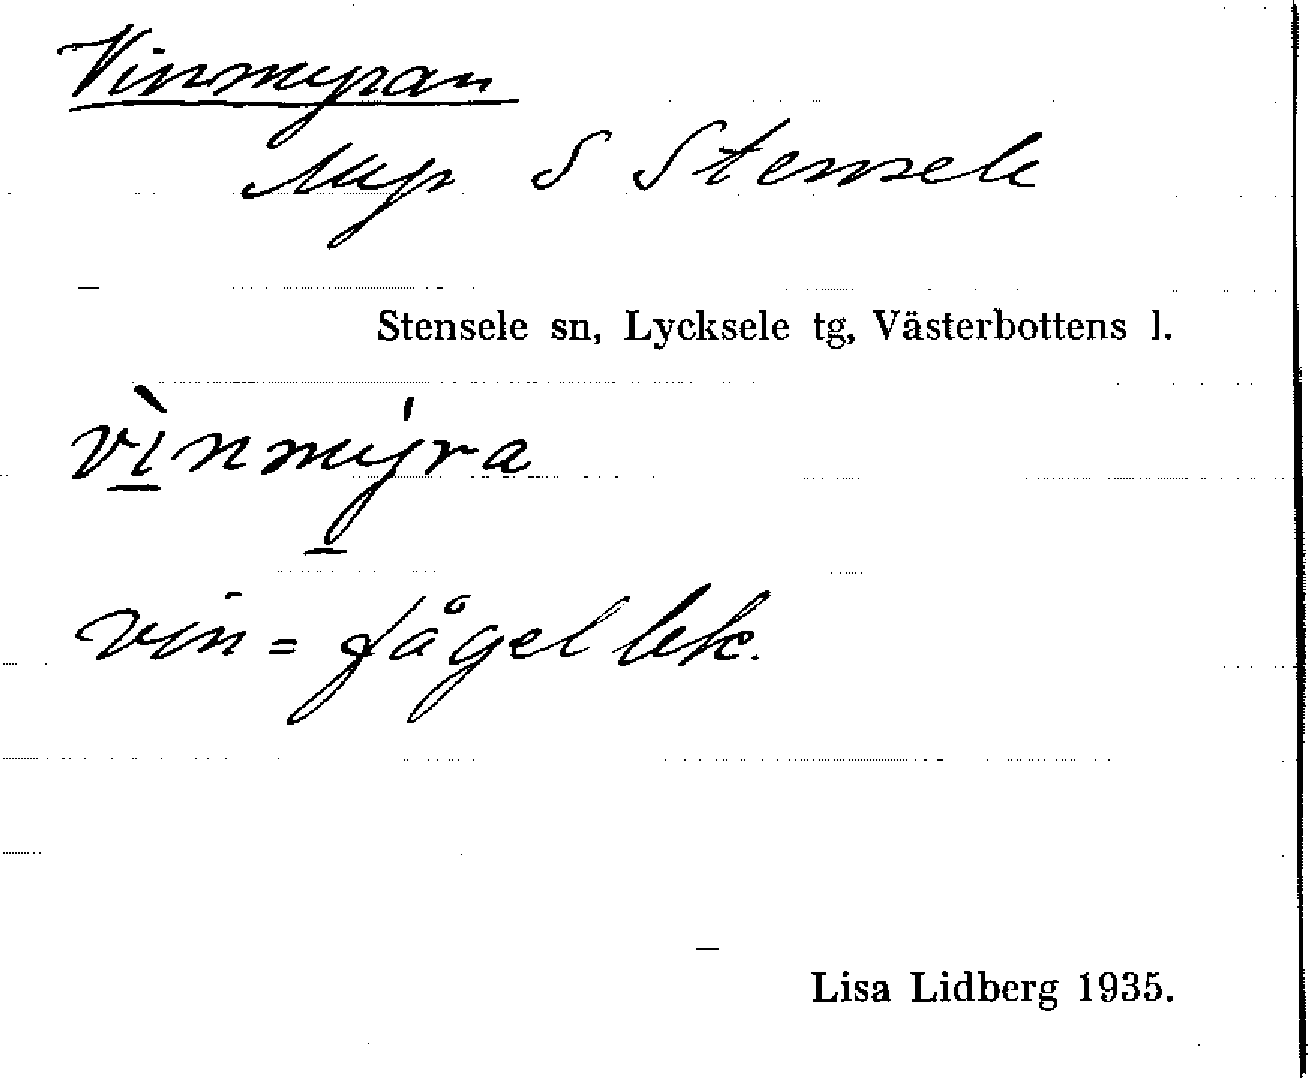 Vinmyran
Myr S Stensele
Stensele sn, Lycksele tg, Västerbottens l.
vı̀nmýra
vin = fågellek.
Lisa Lidberg 1935.